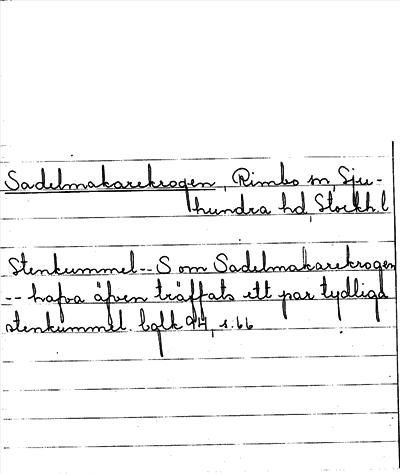 Sadelmakarekrogen, Rimbo sn, Sju-
hundra hd, Stockh. l
Stenkummel -- S om Sadelmakarekrogen
-- hafva äfven träffats ett par tydliga
stenkummel. s. 66